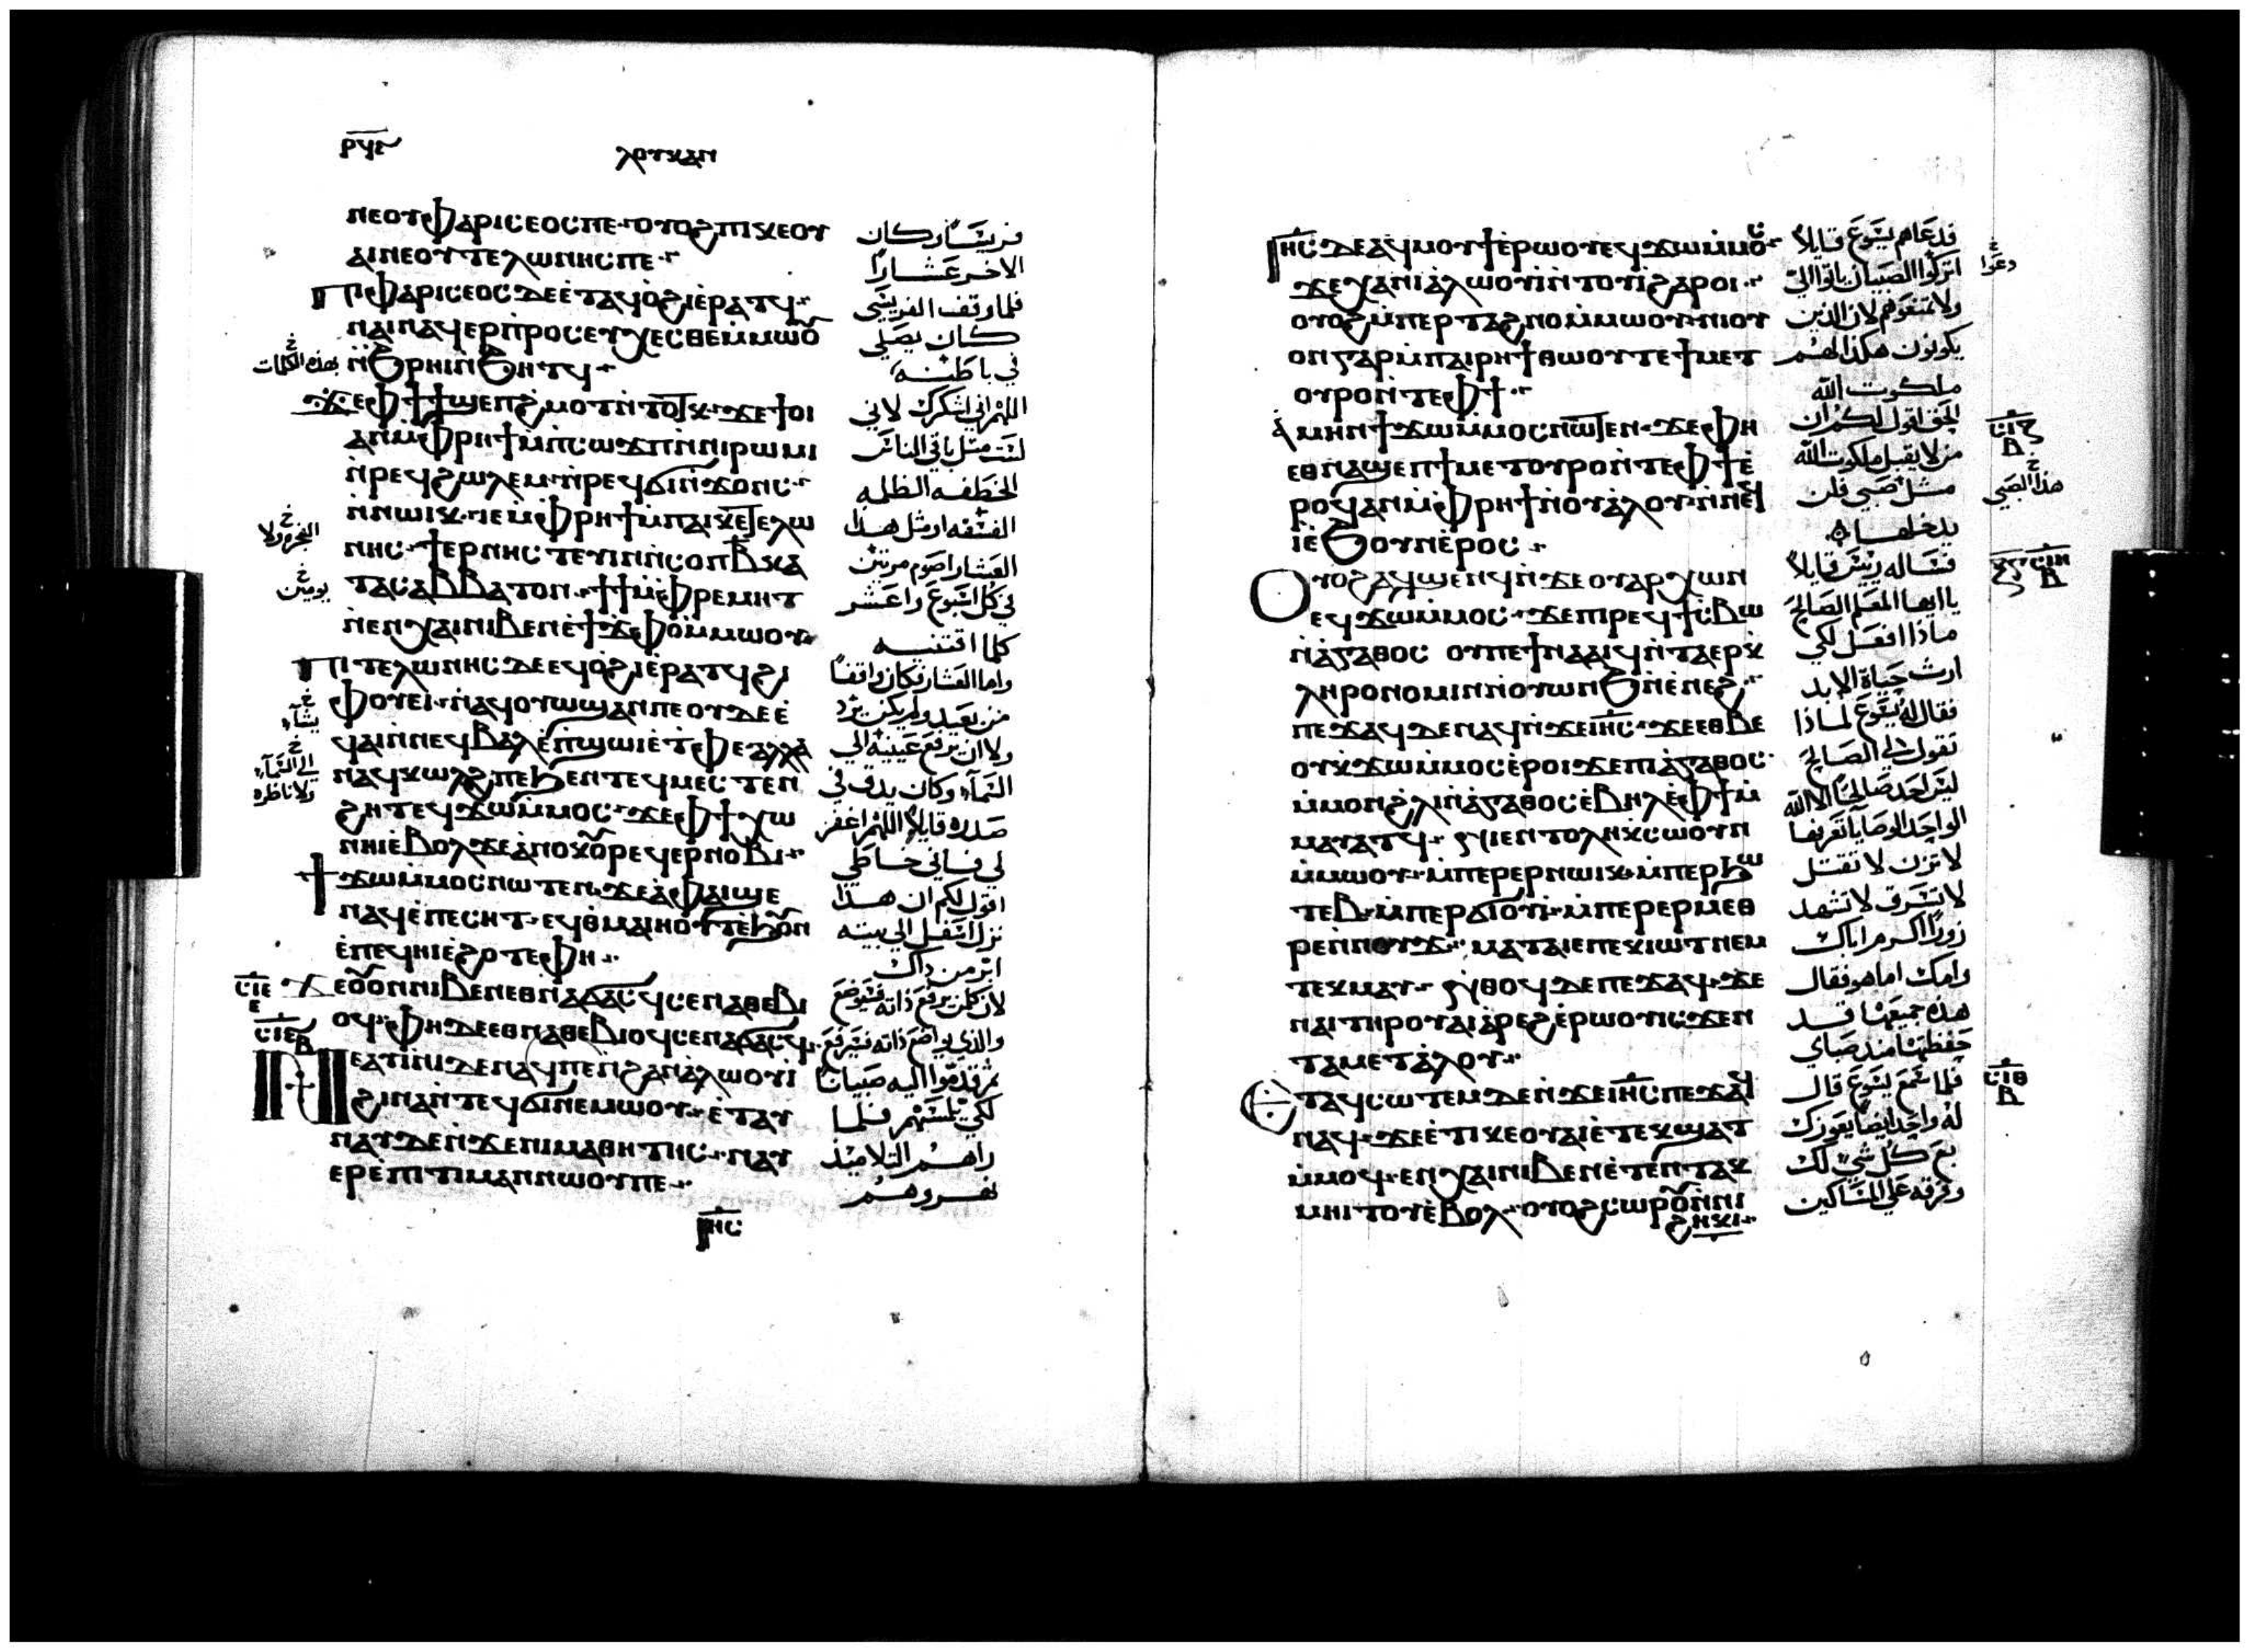 ⲣϥⲋ
ⲗⲟⲩⲕⲁⲛ
ⲛⲉⲟⲩⲫⲁⲣⲓⲥⲉⲟⲥⲡⲉ ⲟⲩⲟϩ ⲡⲓⲭⲉⲟⲩ
ⲁⲓⲛⲉⲟⲩⲧⲉⲗⲱⲛⲏⲥⲡⲉ
ⲡⲓⲫⲁⲣⲓⲥⲉⲟⲥ ⲇⲉ ⲉⲧⲁϥⲟϩⲓ ⲉⲣⲁⲧϥ
ⲛⲁⲓⲛⲁϥⲉⲣⲡⲣⲟⲥⲉⲩⲭⲉⲥⲑⲉ ⲙⲙⲱⲟⲩ
ⲛϧⲣⲏⲓ ⲛϧⲏⲧϥ
ϫⲉ ⲫϯ ϯϣⲉⲡϩⲙⲟⲧ ⲛⲧⲟⲧⲕ ϫⲉ ϯⲟⲓ
ⲁⲛ ⲙⲫⲣⲏϯ ⲙⲡⲥⲱϫⲡ ⲛⲛⲓⲣⲱⲙⲓ
ⲛⲣⲉϥϩⲱⲗⲉⲙ ⲛⲣⲉϥϭⲓⲛϫⲟⲛⲥ
ⲛⲛⲱⲓⲕ ⲓⲉ ⲙⲫⲣⲏϯ ⲙⲡⲁⲓⲕⲉⲧⲉⲗⲱ
ⲛⲏⲥ ϯⲉⲣⲛⲏⲥⲧⲉⲩⲓⲛ ⲛⲥⲟⲡ ⲃ ⲕⲁ
ⲧⲁⲥⲁⲃⲃⲁⲧⲟⲛ ϯϯ ⲙⲫⲣⲉⲙⲏⲧ
ⲛⲉⲛⲭⲁⲓ ⲛⲓⲃⲉⲛ ⲉϯϫⲫⲟ ⲙⲙⲱⲟⲩ
ⲡⲓⲧⲉⲗⲱⲛⲏⲥ ⲇⲉ ⲉϥⲟϩⲓ ⲉⲣⲁⲧϥ ϩⲓ
ⲫⲟⲩⲉⲓ ⲛⲁϥⲟⲩⲱϣ ⲁⲛⲡⲉ ⲟⲩⲇⲉ ⲉ
ϥⲁⲓ ⲛⲛⲉϥⲃⲁⲗ ⲉⲡϣⲱⲓ ⲉⲧⲫⲉ ⲁⲗⲗⲁ
ⲛⲁϥⲕⲱⲗϩ ⲡⲉ ϧⲉⲛ ⲧⲉϥⲙⲉⲥⲧⲉⲛ
ϩⲏⲧ ⲉϥϫⲱⲙⲙⲟⲥ ϫⲉ ⲫϯ ⲭⲱ
ⲛⲏⲓ ⲉⲃⲟⲗ ϫⲉ ⲁⲛⲟⲕ ⲟⲩⲣⲉϥⲉⲣⲛⲟⲃⲓ
ϯϫⲱⲙⲙⲟⲥ ⲛⲱⲧⲉⲛ ϫⲉ ⲁ ⲫⲁⲓ ϣⲉ
ⲛⲁϥ ⲉⲡⲉⲥⲏⲧ ⲉϥⲑⲙⲁⲓⲏⲟⲩⲧ ⲉϧⲟⲩⲛ
ⲉⲡⲉϥⲏⲓ ⲉϩⲟⲧⲉ ⲫⲏ
ϫⲉ ⲟⲩⲟⲛ ⲛⲓⲃⲉⲛ ⲉⲑⲛⲁϭⲁⲥϥ ⲥⲉⲛⲁⲑⲉⲃⲓ
ⲟϥ ⲫⲏ ⲇⲉ ⲉⲑⲛⲁⲑⲉⲃⲓⲟϥ ⲥⲉⲛⲁϭⲁⲥϥ
ⲛⲉⲁⲧⲓⲛⲓ ⲇⲉ ⲛⲁϥⲡⲉ ⲛϩⲁⲛⲁⲗⲱⲟⲩⲓ
ϩⲓⲛⲁ ⲛⲧⲉϥϭⲓⲛⲉⲙⲱⲟⲩ ⲉⲧⲁⲩ
ⲛⲁⲩ ⲇⲉ ⲛϫⲉ ⲛⲓⲙⲁⲑⲏⲧⲏⲥ ⲛⲁⲩ
ⲉⲣⲉⲡⲓⲧⲓⲙⲁⲛ ⲛⲱⲟⲩⲡⲉ
ⲓⲏⲥ
ⲥⲓⲉ
ⲉ
ⲥⲓⲋ
ⲃ
فريسيًا وكان
الاخر عشارًا
فلما وقف الفريسي
كان يصلي
في باطنه
اللهم اني اشكرك لاني
لست مثل باقي الناس
الخطفه الظلمه
الفسقه او مثل هذا
العشار اصوم مرتين
في كل اسبوع واعشر
كلما اقتنيه
واما العشار فكان واقفًا
من بعيد ولم يكن يرد
ولا ان يرفع عينيه الي
السماء وكان يدق في
صدره قايلا اللهم اغفر
لي فاني خاطي
اقول لكم ان هذا
نزل اسفل الي بيته
ابر من ذاك
لان كلمن يرفع ذاته فسيوضع
والذي يواضع ذاته فسيرفع
ثم قدموا اليه صبيانًا
لكي يلمسهم فلما
راهم التلاميذ
نهروهم
بهذه الكلمات
يومين
يشاء
ⲓⲏⲥ ⲇⲉ ⲁϥⲙⲟⲩϯ ⲉⲣⲱⲟⲩ ⲉϥϫⲱⲙⲙⲟⲥ
ϫⲉ ⲭⲁ ⲛⲓⲁⲗⲱⲟⲩⲓ ⲛⲧⲟⲩⲓ ϩⲁⲣⲟⲓ
ⲟⲩⲟϩ ⲙⲡⲉⲣⲧⲁϩⲛⲟ ⲙⲙⲱⲟⲩ ⲛⲓⲟⲩ
ⲟⲛ ⲅⲁⲣ ⲙⲡⲁⲓⲣⲏϯ ⲑⲱⲟⲩ ⲧⲉ ϯⲙⲉⲧ
ⲟⲩⲣⲟ ⲛⲧⲉ ⲫϯ
ⲁⲙⲏⲛ ϯϫⲱⲙⲙⲟⲥ ⲛⲱⲧⲉⲛ ϫⲉ ⲫⲏ
ⲉⲑⲛⲁϣⲉⲡ ϯⲙⲉⲧⲟⲩⲣⲟ ⲛⲧⲉ ⲫϯ ⲉ
ⲣⲟϥ ⲁⲛ ⲙⲫⲣⲏϯ ⲛⲟⲩⲁⲗⲟⲩ ⲛⲛⲉϥ
ⲓ ⲉϧⲟⲩⲛ ⲉⲣⲟⲥ
ⲟⲩⲟϩ ⲁϥϣⲉⲛϥ ⲛϫⲉ ⲟⲩⲁⲣⲭⲱⲛ
ⲉϥϫⲱⲙⲙⲟⲥ ϫⲉ ⲡⲓⲣⲉϥϯⲥⲃⲱ
ⲛⲁⲅⲁⲑⲟⲥ ⲟⲩ ⲡⲉϯⲛⲁⲁⲓϥ ⲛⲧⲁⲉⲣⲕ
ⲗⲏⲣⲟⲛⲟⲙⲓⲛ ⲛⲟⲩⲱⲛϧ ⲛⲉⲛⲉϩ
ⲡⲉϫⲁϥ ⲇⲉ ⲛⲁϥ ⲛϫⲉ ⲓⲏⲥ ϫⲉ ⲉⲑⲃⲉ
ⲟⲩ ⲕϫⲱⲙⲙⲟⲥ ⲉⲣⲟⲓ ϫⲉ ⲡⲓⲁⲅⲁⲑⲟⲥ
ⲙⲙⲟⲛ ϩⲗⲓ ⲛⲁⲅⲁⲑⲟⲥ ⲉⲃⲏⲗ ⲉⲫϯ ⲙ
ⲙⲁⲩⲁⲧϥ ⲛⲓⲉⲛⲧⲟⲗⲏ ⲕⲥⲱⲟⲩⲛ
ⲙⲙⲱⲟⲩ ⲙⲡⲉⲣⲉⲣⲛⲱⲓⲕ ⲙⲡⲉⲣϧⲱ
ⲧⲉⲃ ⲙⲡⲉⲣϭⲓⲟⲩⲓ ⲙⲡⲉⲣⲉⲣⲙⲉⲑ
ⲣⲉ ⲛⲛⲟⲩϫ ⲙⲁⲧⲁⲓⲉ ⲡⲉⲕⲓⲱⲧ ⲛⲉⲙ
ⲧⲉⲕⲙⲁⲩ ⲛⲑⲟϥ ⲇⲉ ⲡⲉϫⲁϥ ϫⲉ
ⲛⲁⲓ ⲧⲏⲣⲟⲩ ⲁⲓⲁⲣⲉϩ ⲉⲣⲱⲟⲩ ⲓⲥϫⲉⲛ
ⲧⲁⲙⲉⲧⲁⲗⲟⲩ
ⲉⲧⲁϥⲥⲱⲧⲉⲙ ⲇⲉ ⲛϫⲉ ⲓⲏⲥ ⲡⲉϫⲁϥ
ⲛⲁϥ ϫⲉ ⲉⲧⲓ ⲕⲉⲟⲩⲁⲓ ⲉⲧⲉⲕϣⲁⲧ
ⲙⲙⲟϥ ⲉⲛⲭⲁⲓ ⲛⲓⲃⲉⲛ ⲉⲧⲉⲛⲧⲁⲕ
ⲙⲏⲓⲧⲟⲩ ⲉⲃⲟⲗ ⲟⲩⲟϩ ⲥⲱⲣⲟⲩ ⲛⲛⲓ
ϩⲏⲕⲓ
فدعاهم يسوع قايلا
اتركوا الصبيان ياتوا الي
ولا تمنعوهم لان الذين
يكونون هكذا لهم
ملكوت الله
الحق اقول لكم ان
من لا يقبل ملكوت الله
مثل صبي فلن
يدخلها
فساله رييس قايلا
يا ايها المعلم الصالح
ماذا افعل لكي
ارث حياة الابد
فقال له يسوع لماذا
تقول لي الصالح
ليس احد صالحًا الا الله
الواحد الوصايا تعرفها
لا تزن لا تقتل
لا تسرق لا تشهد
زورًا اكرم اباك
وامك اما هو فقال
هذه جميعها قد
حفظتها منذ صباي
فلما سمع يسوع قال
له واحد ايضًا يعوزك
بع كل شي لك
وفرقه علي المساكين
هذا الصبي
ⲥⲓⲍ
ⲃ
ⲥⲓⲏ
ⲃ
ⲥⲓⲑ
ⲃ